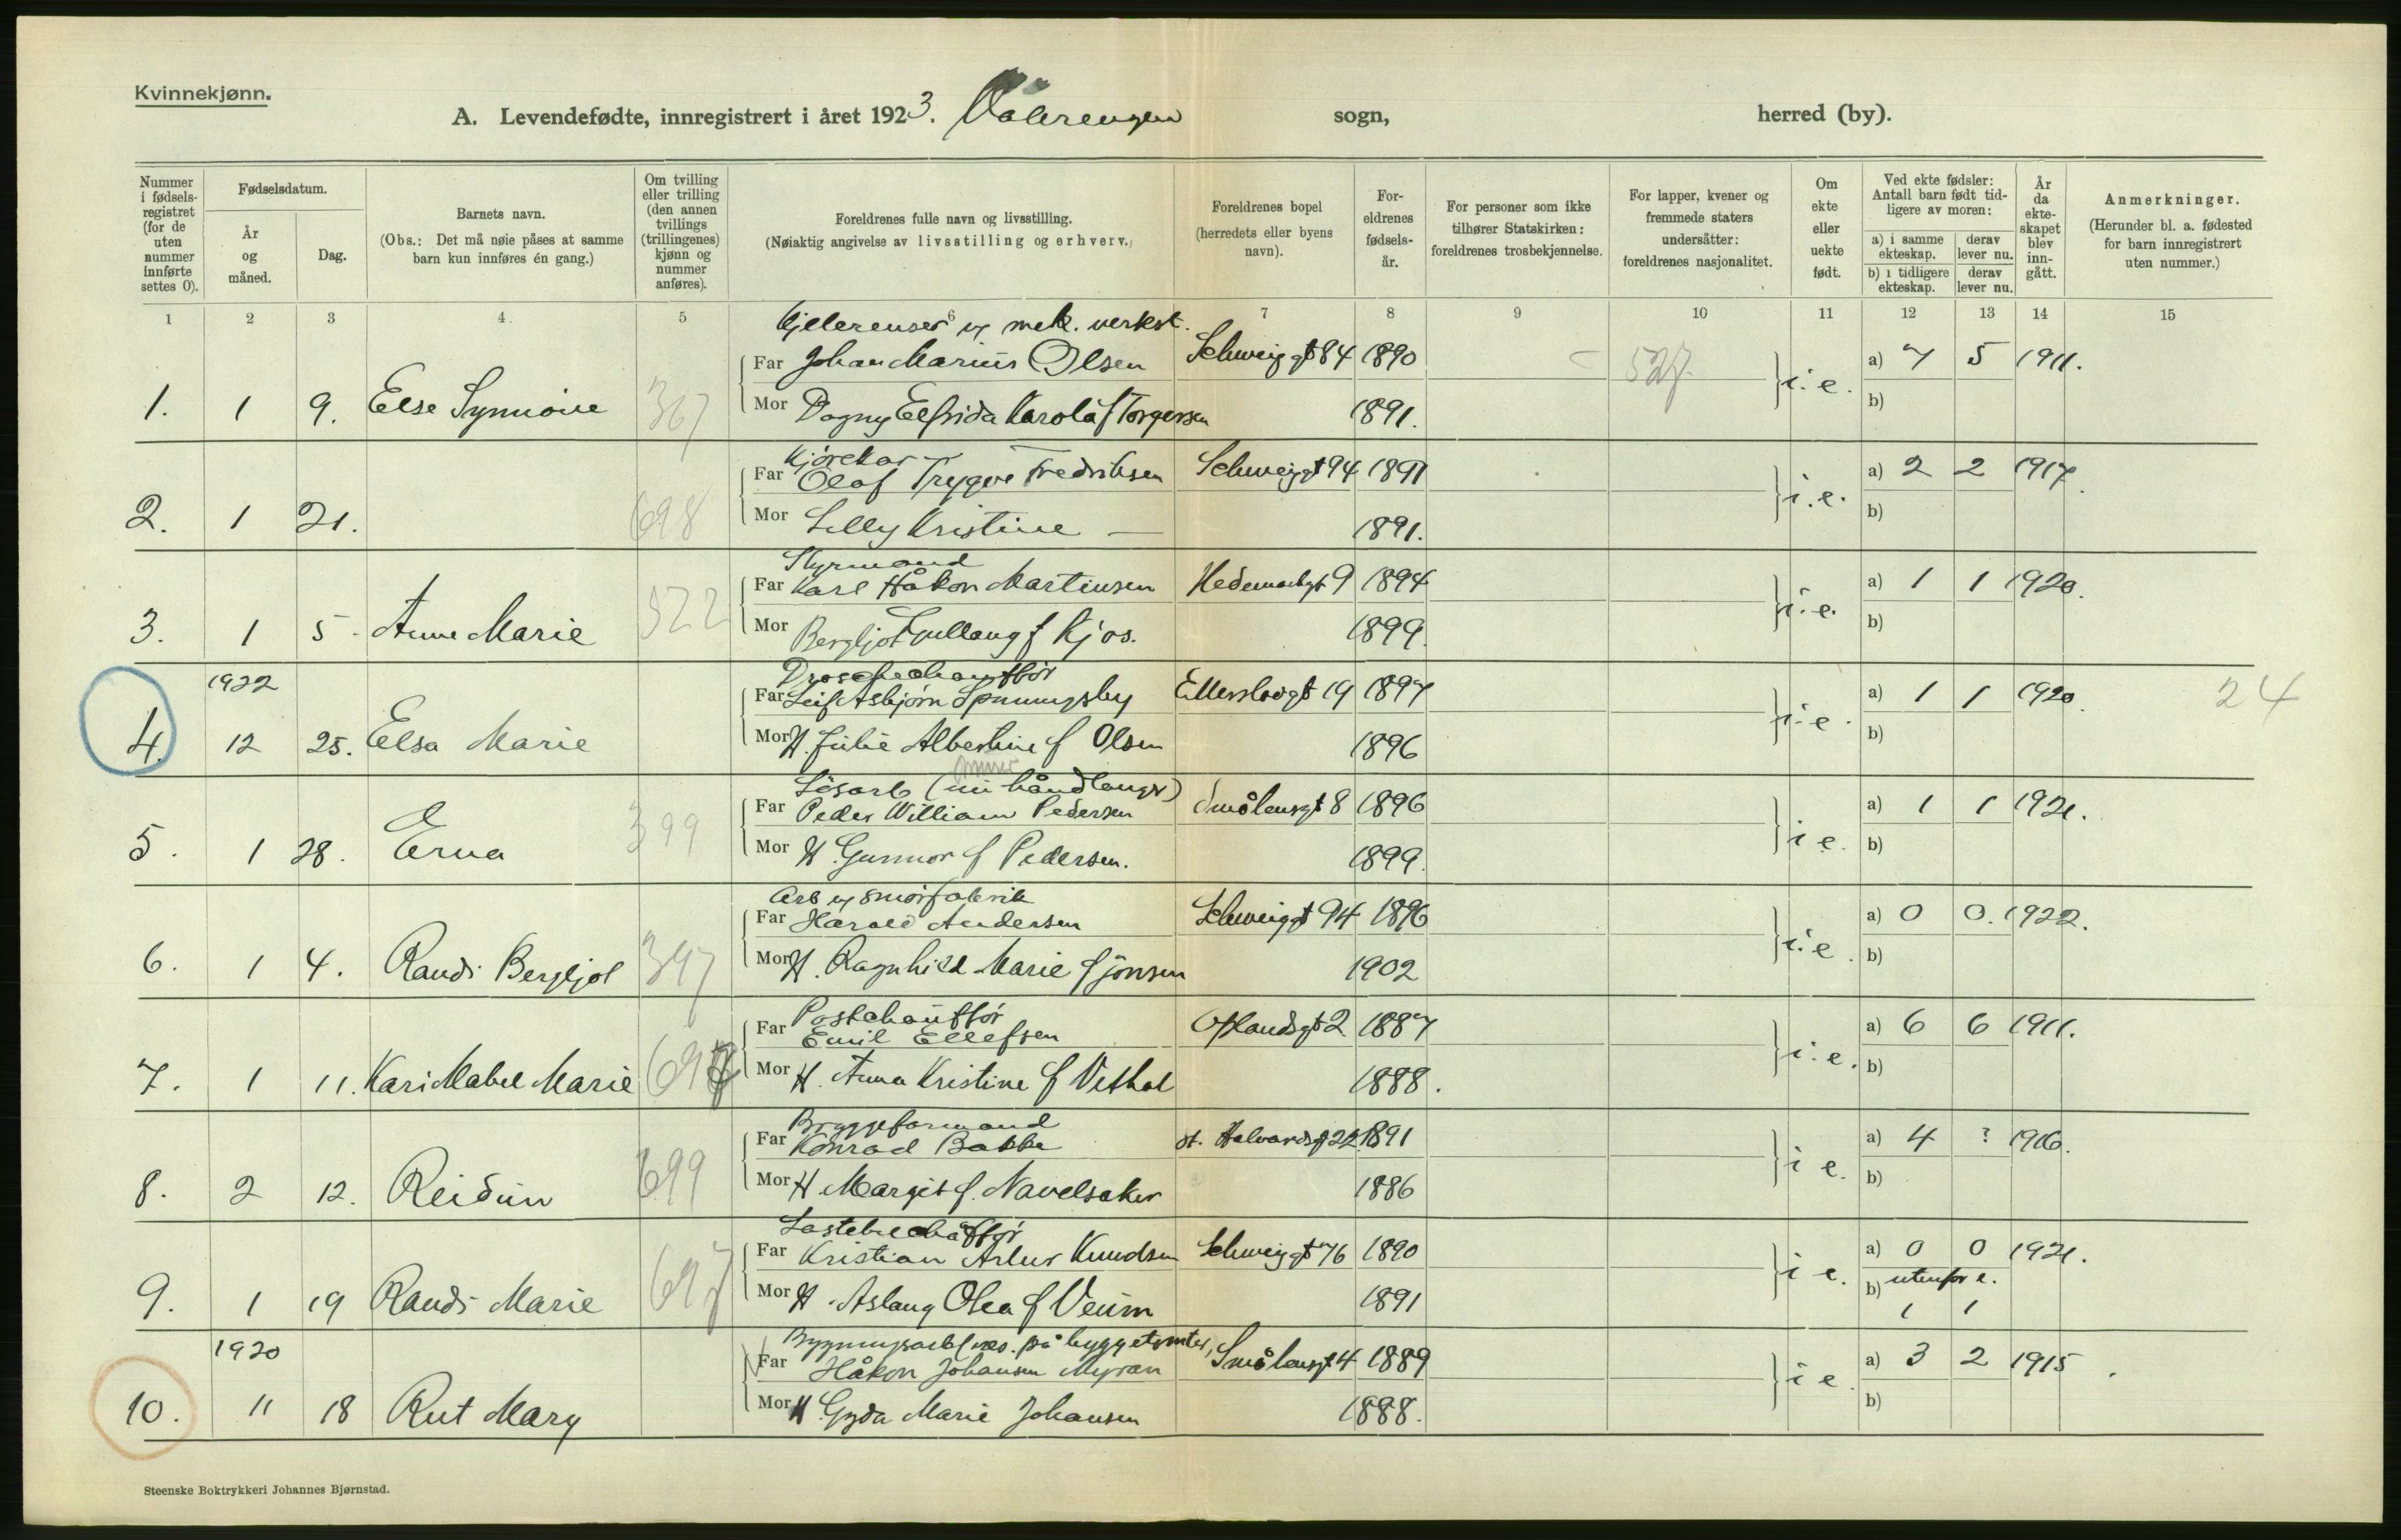 Kvinnekjønn.
A. Levendefødte, innregistrert i året 1923. Vålerengen sogn, herred (by).
Nummer i fødselsregistret (for de uten nummer innførte settes 0).
Fødselsdatum.
År og måned.
Dag.
Barnets navn.
(Obs.: Det må nøie påses at samme barn kun innføres én gang.)
Om tvilling eller trilling (den annen tvillings (trillingenes) kjønn og nummer anføres).
Foreldrenes fulle navn og livsstilling.
(Nøiaktig angivelse av livsstilling og erhverv.)
Foreldrenes bopel (herredets eller byens navn).
Foreldrenes fødselsår.
For personer som ikke tilhører Statskirken: foreldrenes trosbekjennelse.
For lapper, kvener og fremmede staters undersåtter: foreldrenes nasjonalitet.
Om ekte eller uekte født.
Ved ekte fødsler: Antall barn født tidligere av moren:
a) i samme ekteskap. derav lever nu.
b) i tidligere ekteskap. derav lever nu.
År da ekteskapet blev inngått.
Anmerkninger.
(Herunder bl. a. fødested for barn innregistrert uten nummer.)
1 2 3 4 5 6 7 8 9 10 11 12 13 14 15
Kjelerenser mek. verkst.
Far Johan Marius Olsen Schweiggt 84 1890 527 a) 7 5 1911.
1. 1 9. Else Synnöve 367 Mor Dagny Elfrida Karola f Torgersen 1891. i. e. b)
Kjörekar
Far Olaf Trygve Fredriksen Schweiggt 94 1891 a) 2 2 1917.
2. 1 21. 698 Mor Lilly Kristine — 1891. i. e. b)
Styrmand
Far Karl Håkon Martinsen Hedemarkgt 9 1894 a) 1 1 1920.
3. 1 5. Anne Marie 522 Mor Bergljot Gullaug f Kjos. 1899. i. e. b)
1922 Droschechauffør
Far Leif Asbjørn Spnningsby Ellerslevgt 19 1897 a) 1 1 1920. 24
4. 12 25. Elsa Marie Mor H. Julie Albertine f Olsen 1896 i. e. b)
Lösarb (murhåndlanger)
Far Peder William Pedersen Smålensgt 8 1896 a) 1 1 1921.
5. 1 28. Erna 399 Mor H. Gunnor f Pedersen. 1899. i e. b)
Arb smörfabrik
Far Harald Andersen Schweiggt 94 1896 a) 0 0. 1922.
6. 1 4. Randi Bergljot 397 Mor H. Ragnhild Marie f Jonsen 1902 i. e. b)
Postchauffør
Far Emil Ellefsen Oplandsgt 2 1887 a) 6 6 1911.
7. 1 11. Kari Mabel Marie Mor H. Anna Kristine f Vethal 1888. i. e. b)
Bryggeformand
Far Konrad Bakke St. Halvardsgt 22 1891 a) 4 ? 1916.
8. 2 12. Reidun 699 Mor H Margit f. Navelsaker 1886 i e. b)
Lastebilchauffør
Far Kristian Artur Knudsen Schweiggt 76 1890 a) 0 0 1921.
9. 1 19 Randi Marie 697 Mor H. Aslaug Olea f Veum 1891 i e. b) utenfor e. 1 1
1920 Bygningsarb (væs. på byggetomter)
Far Håkon Johansen Myran Smålensgt 4 1889 a) 3 2 1915.
10. 11 18 Rut Mary Mor H. Gyda Marie Johansen 1888. i e. b)
Steenske Boktrykkeri Johannes Bjørnstad.